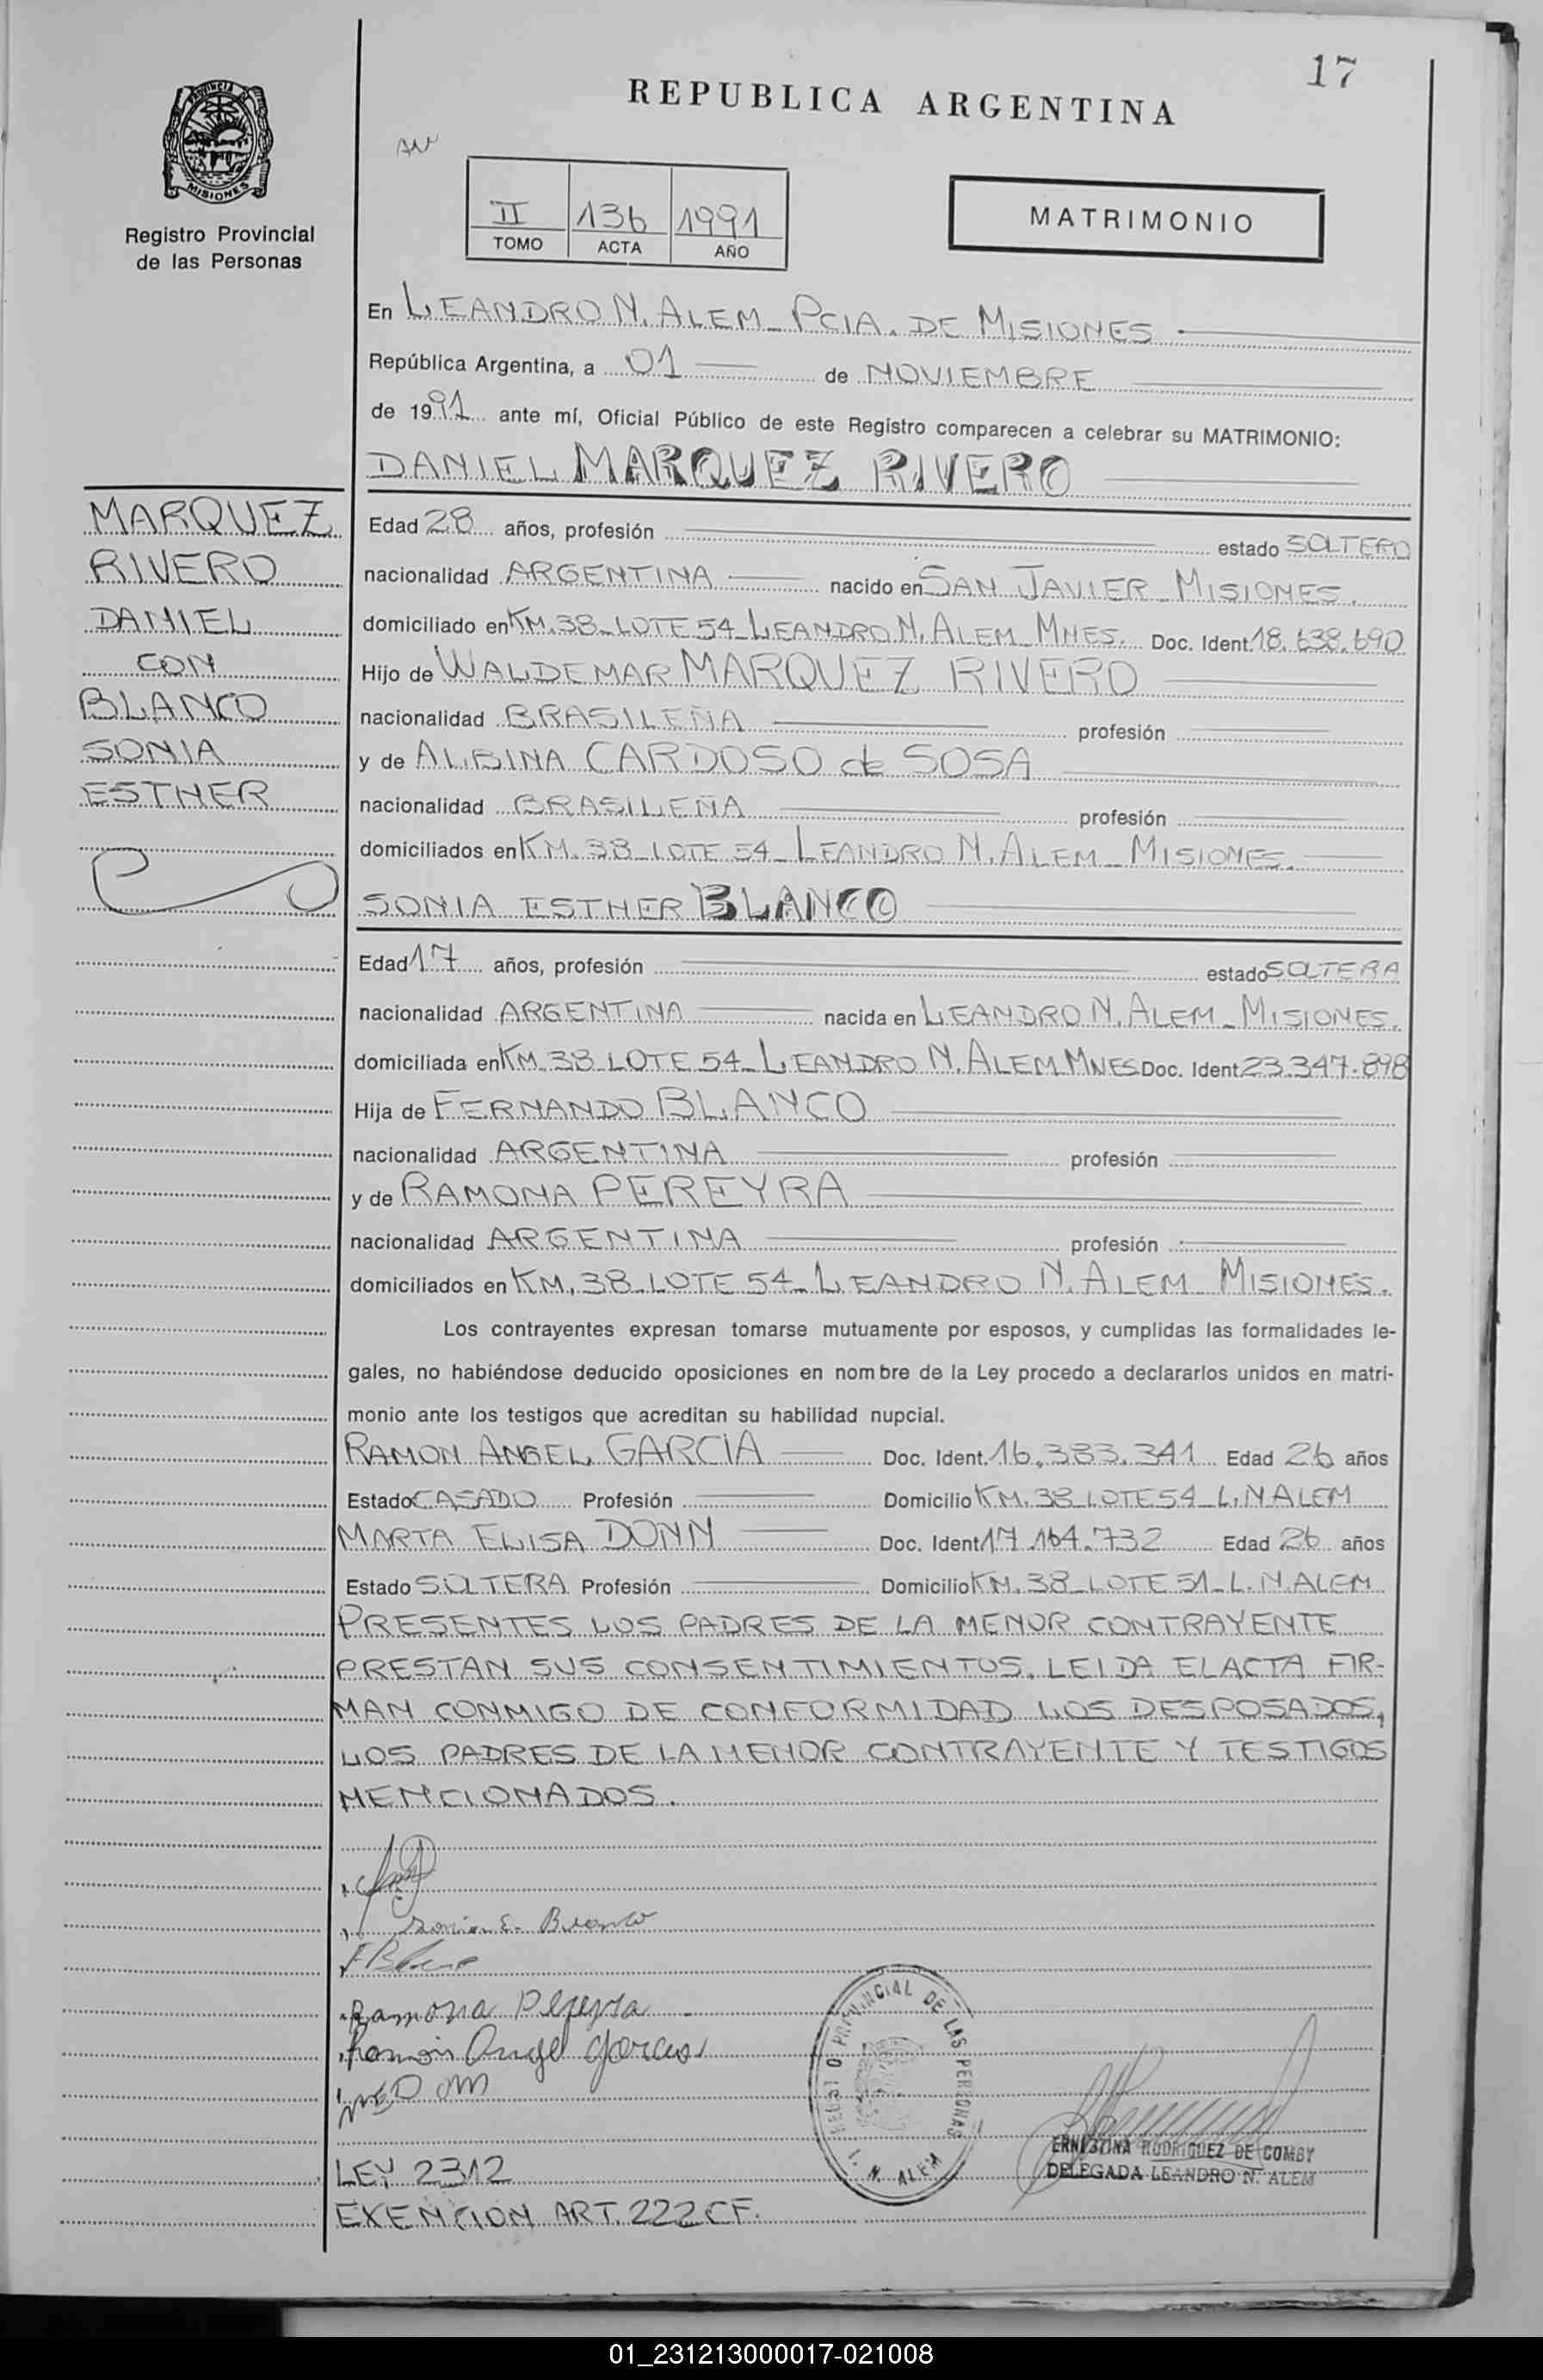 17
REPUBLICA ARGENTINA
PROVINCIA DE
MISIONES
Registro Provincial
de las Personas
II 136 1991
TOMO ACTA AÑO
MATRIMONIO
En LEANDRO N. ALEM_ PCIA. DE MISIONES
República Argentina, a 01 de NOVIEMBRE
de 1991 ante mí, Oficial Público de este Registro comparecen a celebrar su MATRIMONIO:
DANIEL MARQUEZ RIVERO
MARQUEZ
RIVERO
DANIEL
CON
BLANCO
SONIA
ESTHER
Edad 28 años, profesión estado SOLTERO
nacionalidad ARGENTINA nacido en SAN JAVIER_ MISIONES.
domiciliado en KM. 38_LOTE 54_LEANDRO N. ALEM_MNES. Doc. Ident. 18.638.690
Hijo de WALDEMAR MARQUEZ RIVERO
nacionalidad BRASILEÑA profesión
y de ALBINA CARDOSO de SOSA
nacionalidad BRASILEÑA profesión
domiciliados en KM. 38_LOTE 54_LEANDRO N. ALEM_MISIONES.
SONIA ESTHER BLANCO
Edad 17 años, profesión estado SOLTERA
nacionalidad ARGENTINA nacida en LEANDRO N. ALEM_MISIONES.
domiciliada en KM. 38 LOTE 54_LEANDRO N. ALEM MNES Doc. Ident. 23.347.898
Hija de FERNANDO BLANCO
nacionalidad ARGENTINA profesión
y de RAMONA PEREYRA
nacionalidad ARGENTINA profesión
domiciliados en KM. 38_LOTE 54_LEANDRO N. ALEM_MISIONES.
Los contrayentes expresan tomarse mutuamente por esposos, y cumplidas las formalidades le-
gales, no habiéndose deducido oposiciones en nombre de la Ley procedo a declararlos unidos en matri-
monio ante los testigos que acreditan su habilidad nupcial.
RAMON ANGEL GARCIA Doc. Ident. 16.383.341 Edad 26 años
Estado CASADO Profesión Domicilio KM. 38 LOTE 54_L. N ALEM
MARTA ELISA DONN Doc. Ident 17.164.732 Edad 26 años
Estado SOLTERA Profesión Domicilio KM. 38_LOTE 51_L. N. ALEM
PRESENTES LOS PADRES DE LA MENOR CONTRAYENTE
PRESTAN SUS CONSENTIMIENTOS. LEIDA EL ACTA FIR-
MAN CONMIGO DE CONFORMIDAD LOS DESPOSADOS,
LOS PADRES DE LA MENOR CONTRAYENTE Y TESTIGOS
MENCIONADOS.
Sonia E. Blanco
Ramona Pereyra
Ramón Angel Garcia
REGISTRO PROVINCIAL DE LAS PERSONAS
L. N. ALEM
ERNESTINA RODRIGUEZ DE COMBY
DELEGADA LEANDRO N. ALEM
LEY 2312
EXENCION ART. 222 CF.
01_231213000017-021008